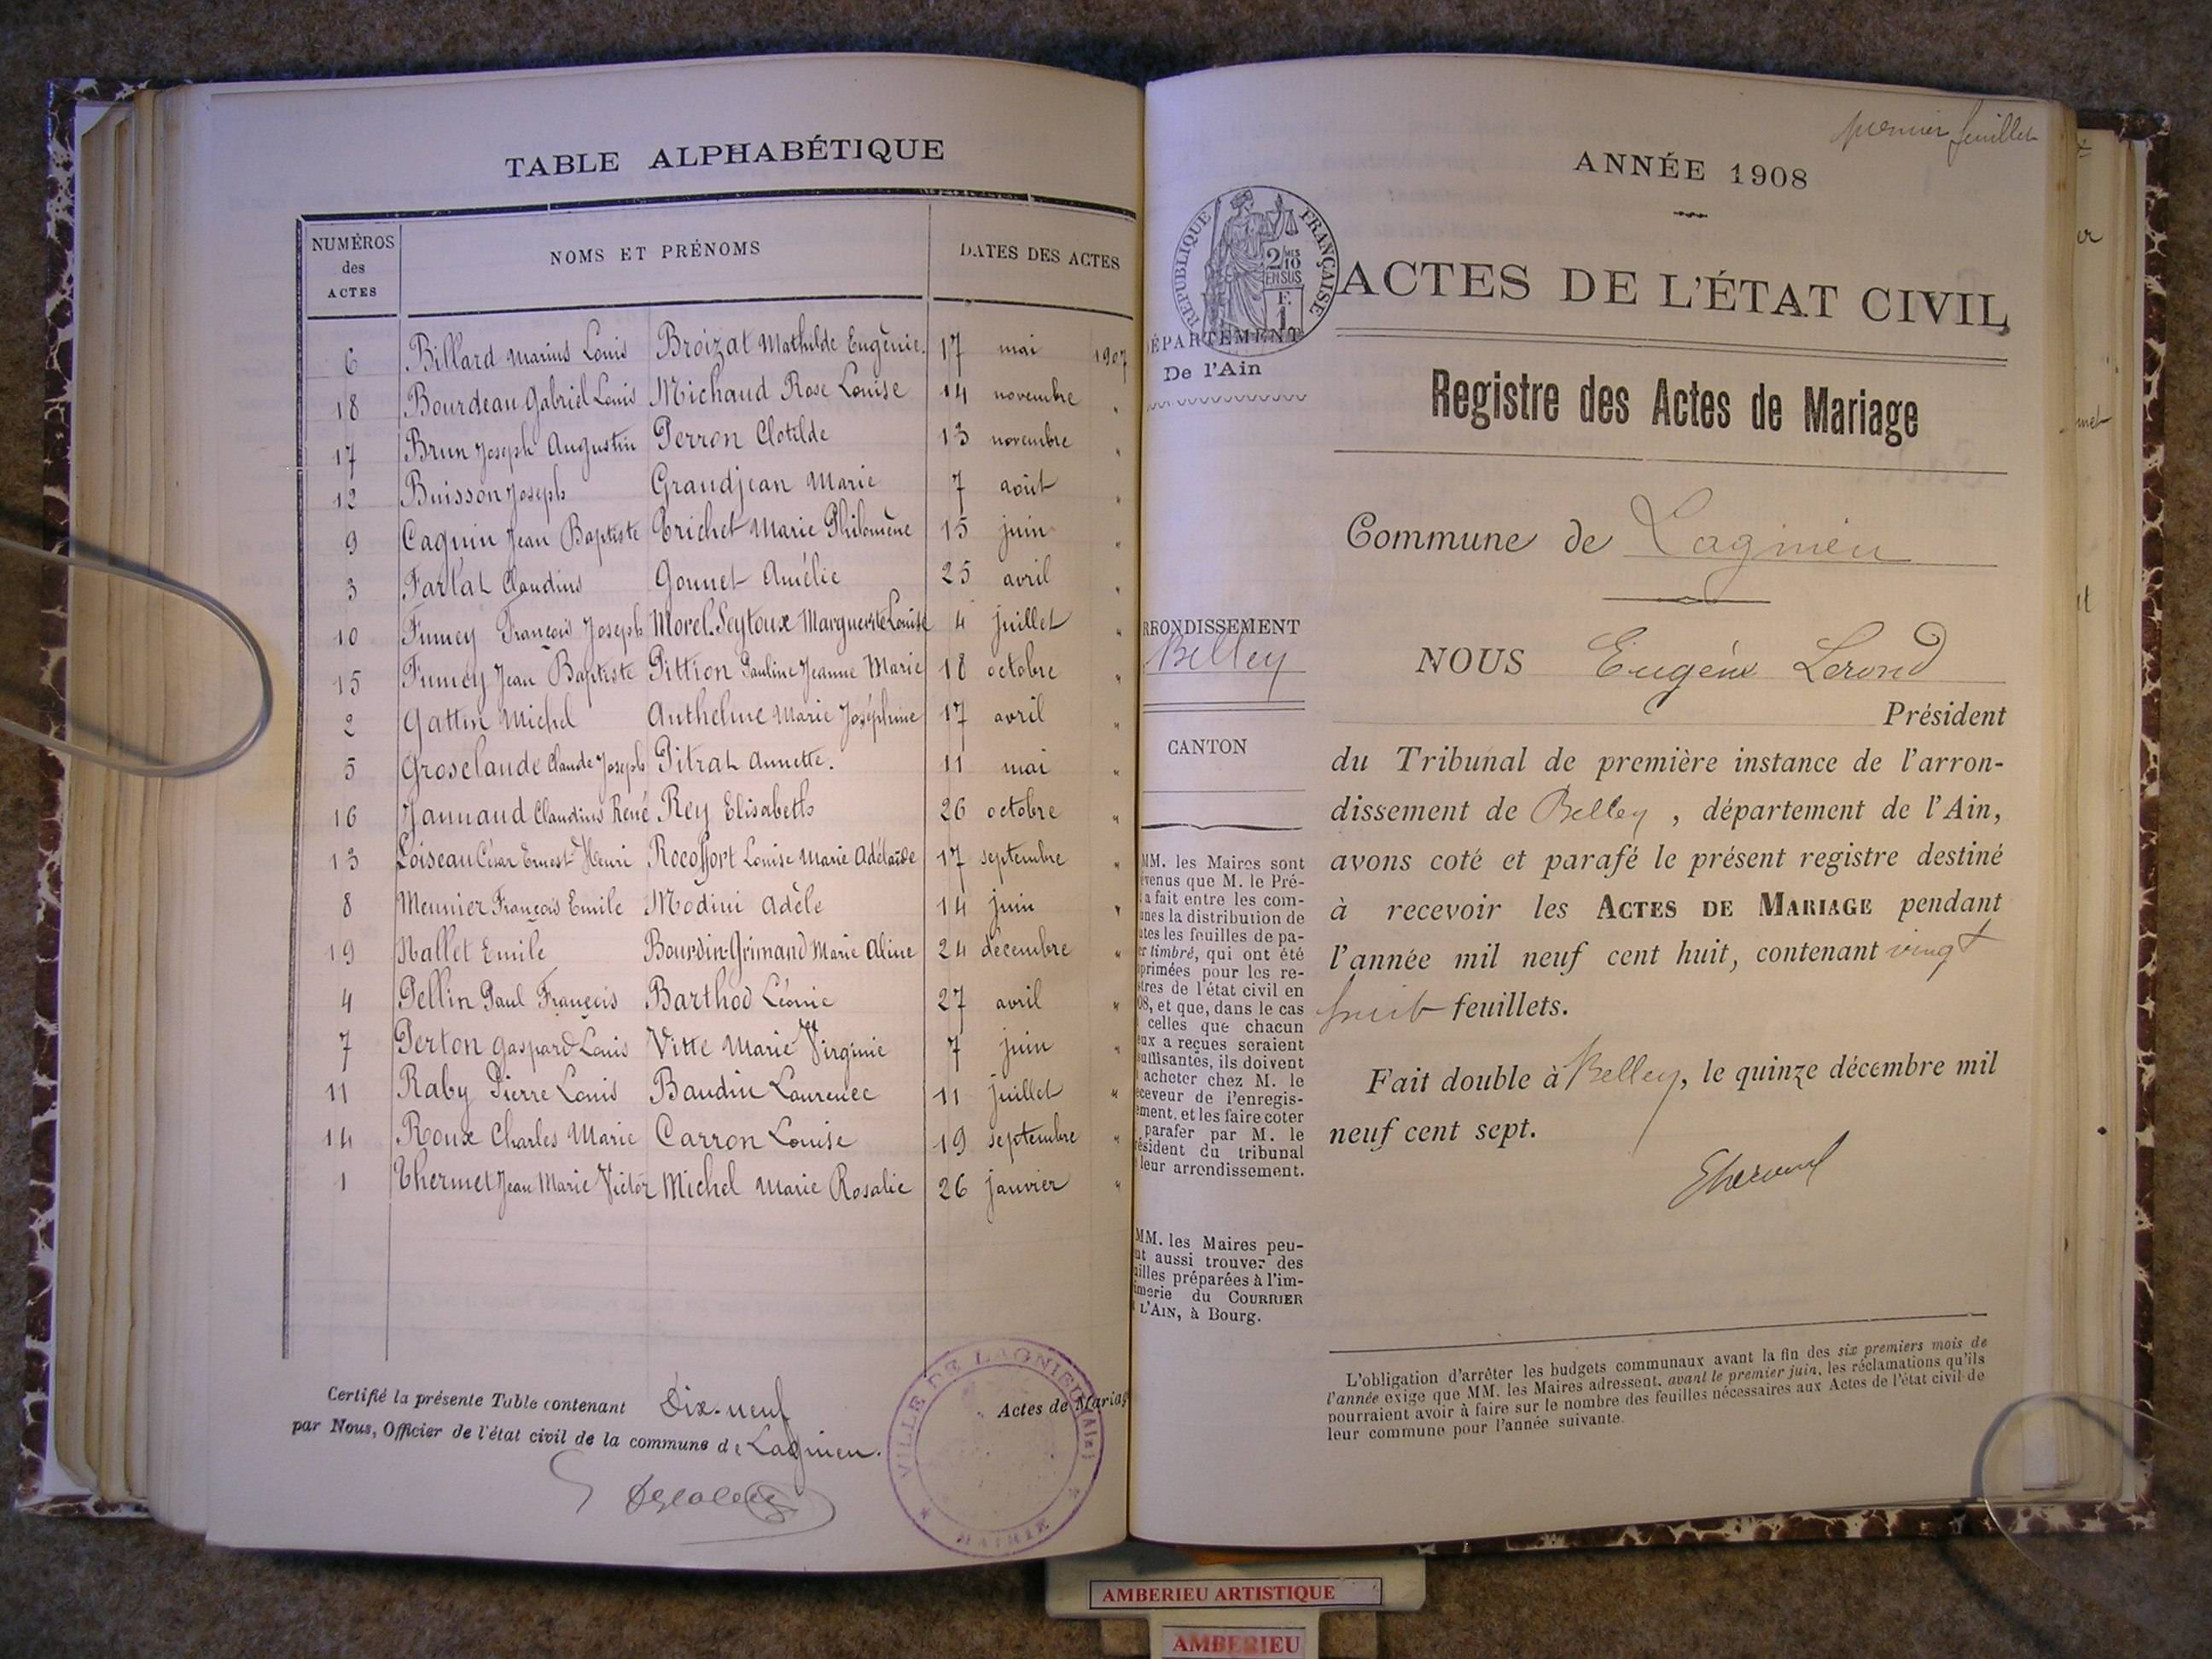 TABLE ALPHABÉTIQUE
NUMÉROS des ACTES
NOMS ET PRÉNOMS
DATES DES ACTES
6 Billard Marius Louis Broizat Mathilde Eugènie. 17 mai 1907
18 Bourdeau Gabriel Louis Michaud Rose Louise 14 novembre "
17 Brun Joseph Augustin Perron Clotilde 13 novembre "
12 Buisson Joseph Grandjean Marie 7 août "
9 Caquin Jean Baptiste Trichet Marie Philomène 15 juin "
3 Farlat Claudius Gonnet Amélie 25 avril "
10 Fumey François Joseph Morel-Seytoux Marguerite Louise 4 juillet "
15 Fumey Jean Baptiste Pittion Pauline Jeanne Marie 18 octobre "
2 Gattin Michel Anthelme Marie Joséphine 17 avril "
5 Groselaude Claude Joseph Pitrat Annette. 11 mai "
16 Jannaud Claudius René Rey Elisabeth 26 octobre "
13 Loiseau César Ernest Henri Rocoffort Louise Marie Adélaïde 17 septembre "
8 Meunier François Emile Modini Adèle 14 juin "
19 Nallet Emile Boursin-Grimand Marie Aline 24 décembre "
4 Pellin Paul François Barthod Léonie 27 avril "
7 Perton Gaspard Louis Vitte Marie Virginie 7 juin "
11 Raby Pierre Louis Baudin Laurence 11 juillet "
14 Roux Charles Marie Carron Louise 19 septembre "
1 Thermet Jean Marie Victor Michel Marie Rosalie 26 janvier "
Certifié la présente Table contenant Dix-neuf Actes de Mariag
par Nous, Officier de l'état civil de la commune de Lagnieu.
VILLE DE LAGNIEU (Ain)
MAIRIE
premier feuillet
ANNÉE 1908
RÉPUBLIQUE FRANÇAISE
2/10 EN SUS
F. 1
ACTES DE L'ÉTAT CIVIL
ÉPARTEMENT
De l'Ain
Registre des Actes de Mariage
Commune de Lagnieu
RRONDISSEMENT
Belley
CANTON
NOUS Eugène Lerond
Président
du Tribunal de première instance de l'arron-
dissement de Belley, département de l'Ain,
avons coté et parafé le présent registre destiné
à recevoir les ACTES DE MARIAGE pendant
l'année mil neuf cent huit, contenant vingt
huit feuillets.
Fait double à Belley, le quinze décembre mil
neuf cent sept.
MM. les Maires sont
evenus que M. le Pré-
t a fait entre les com-
unes la distribution de
utes les feuilles de pa-
er timbré, qui ont été
primées pour les re-
stres de l'état civil en
08, et que, dans le cas
celles que chacun
eux a reçues seraient
suffisantes, ils doivent
acheter chez M. le
eceveur de l'enregis-
ement, et les faire coter
parafer par M. le
résident du tribunal
leur arrondissement.
MM. les Maires peu-
nt aussi trouver des
uilles préparées à l'im-
imerie du COURRIER
L'AIN, à Bourg.
L'obligation d'arrêter les budgets communaux avant la fin des six premiers mois de
l'année exige que MM. les Maires adressent, avant le premier juin, les réclamations qu'ils
pourraient avoir à faire sur le nombre des feuilles nécessaires aux Actes de l'état civil de
leur commune pour l'année suivante.
AMBERIEU ARTISTIQUE
AMBERIEU